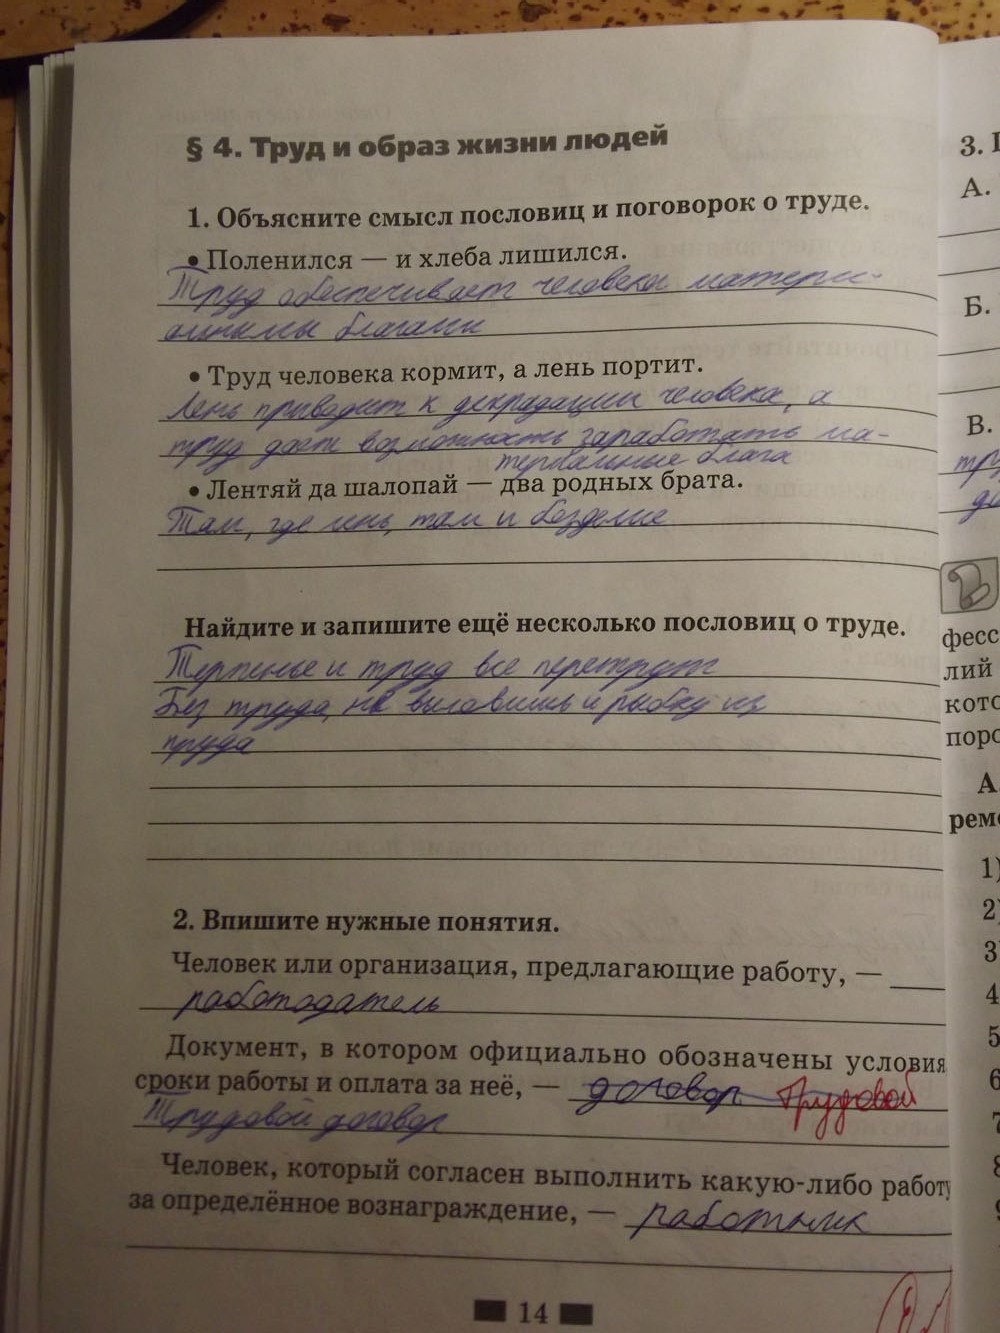 § 4. Труд и образ жизни людей
3.
1. Объясните смысл пословиц и поговорок о труде.
А.
• Поленился — и хлеба лишился.
Труд обеспечивает человека матери-
альными благами
Б.
• Труд человека кормит, а лень портит.
Лень приводит к деградации человека, а
труд дает возможность заработать ма-
териальные блага
В.
• Лентяй да шалопай — два родных брата.
Там, где лень, там и безделие
Найдите и запишите ещё несколько пословиц о труде.
Терпенье и труд все перетрут
Без труда не выловишь и рыбку из
пруда
фесс
лий
кото
поро
А.
ремо
1)
2)
3)
4
5
6
7
8
9
2. Впишите нужные понятия.
Человек или организация, предлагающие работу, —
работодатель
Документ, в котором официально обозначены условия
сроки работы и оплата за неё, — договор Трудовой
Трудовой договор
Человек, который согласен выполнить какую-либо работу
за определённое вознаграждение, — работник
14